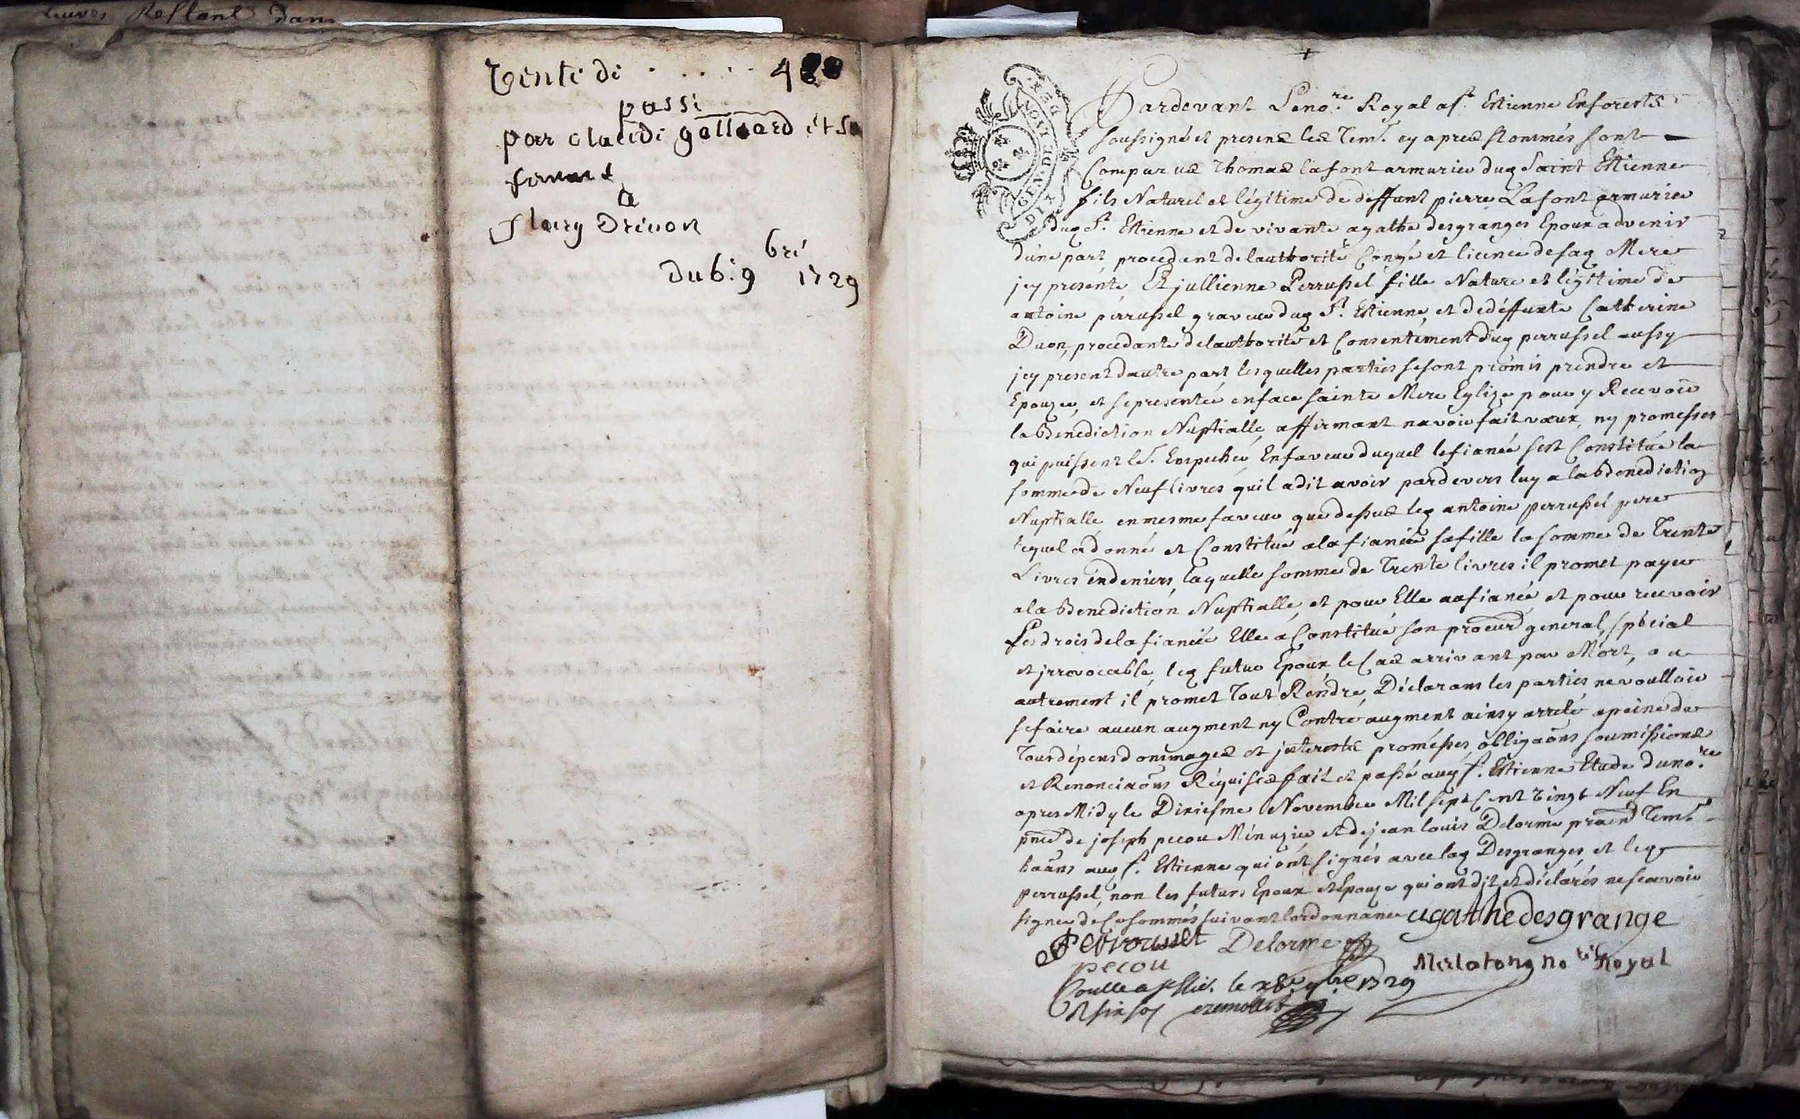 leuvs Restant dans
Vente de . . . . . 400
passé
par claude galleard et sa
femme
a
fleury Drivon
du 6: 9bre 1729
Pardevant Leno.re Royal a st. Estienne Enforests
soussigné et presens les Tem.s cy apres Nommés sont
Comparus Thomas Lafont armurier dud Saint Estienne
fils Naturel et légitime de deffunt pierre Lafont armurier
dud st. Estienne et de vivante agathe desgranges Epoux advenir
d'une part procedant delauthorité Congé et licence de sad Mere
jcy presente, Et jullienne Perrussel fille Nature et légitime de
antoine perrussel graveur dud st. Estienne, et de déffunte Catherine
Duon, procedante delauthorité et Consentement dud perrussel aussy
jcy present dautre part lesquelles parties se sont promis prendre et
Epouzer, et se presenter en face sainte Mere Eglize pour y Recevoir
la Benediction Nuptialle, affirmant navoir fait vœux, ny promesses
qui puissent les. Empecher Enfaveur duquel le fiancé sest Constitué la
somme de Neuf livres quil a dit avoir pardevers luy a la Benediction
Nuptialle en mesme faveur que dessus led antoine perrussel pere
lequel a donné et Constitué a la fiancée sa fille la somme de Trente
Livres en deniers, laquelle somme de Trente livres il promet payer
a la Benediction Nuptialle, et pour Elle au fiancé et pour recevoir
Les drois de la fiancée Elle a Constitué son procur general, spécial
et jrrevocable, led futur Epoux le Cas arrivant par Mort, ou
autrement il promet Tout Rendre, Déclarans les parties ne voulloir
se faire aucun augment ny Contre augment ainsy arrêté a peine de
Tous dépens dommages et jnterests promesses obligaons soumissions
et Renonciaons Réquises fait et passé aud st. Estienne Etude du no.re
apres Midy le Dixiesme Novembre Mil sept Cent vingt Neuf En
pnce de joseph pecou Menuzier et de jean louis Delorme praend Tem.s
haans aud st. Estienne qui ont signés avec lad Desgranges et led
perrussel, non les futurs Epoux et Epouze qui ont dit et déclarés ne sçavoir
signer de Ce sommés suivant lordonnance agathe desgrange
Perrousset Delorme
pecou Malatong no re Royal
Coullé a st Etie. le 9bre 1729